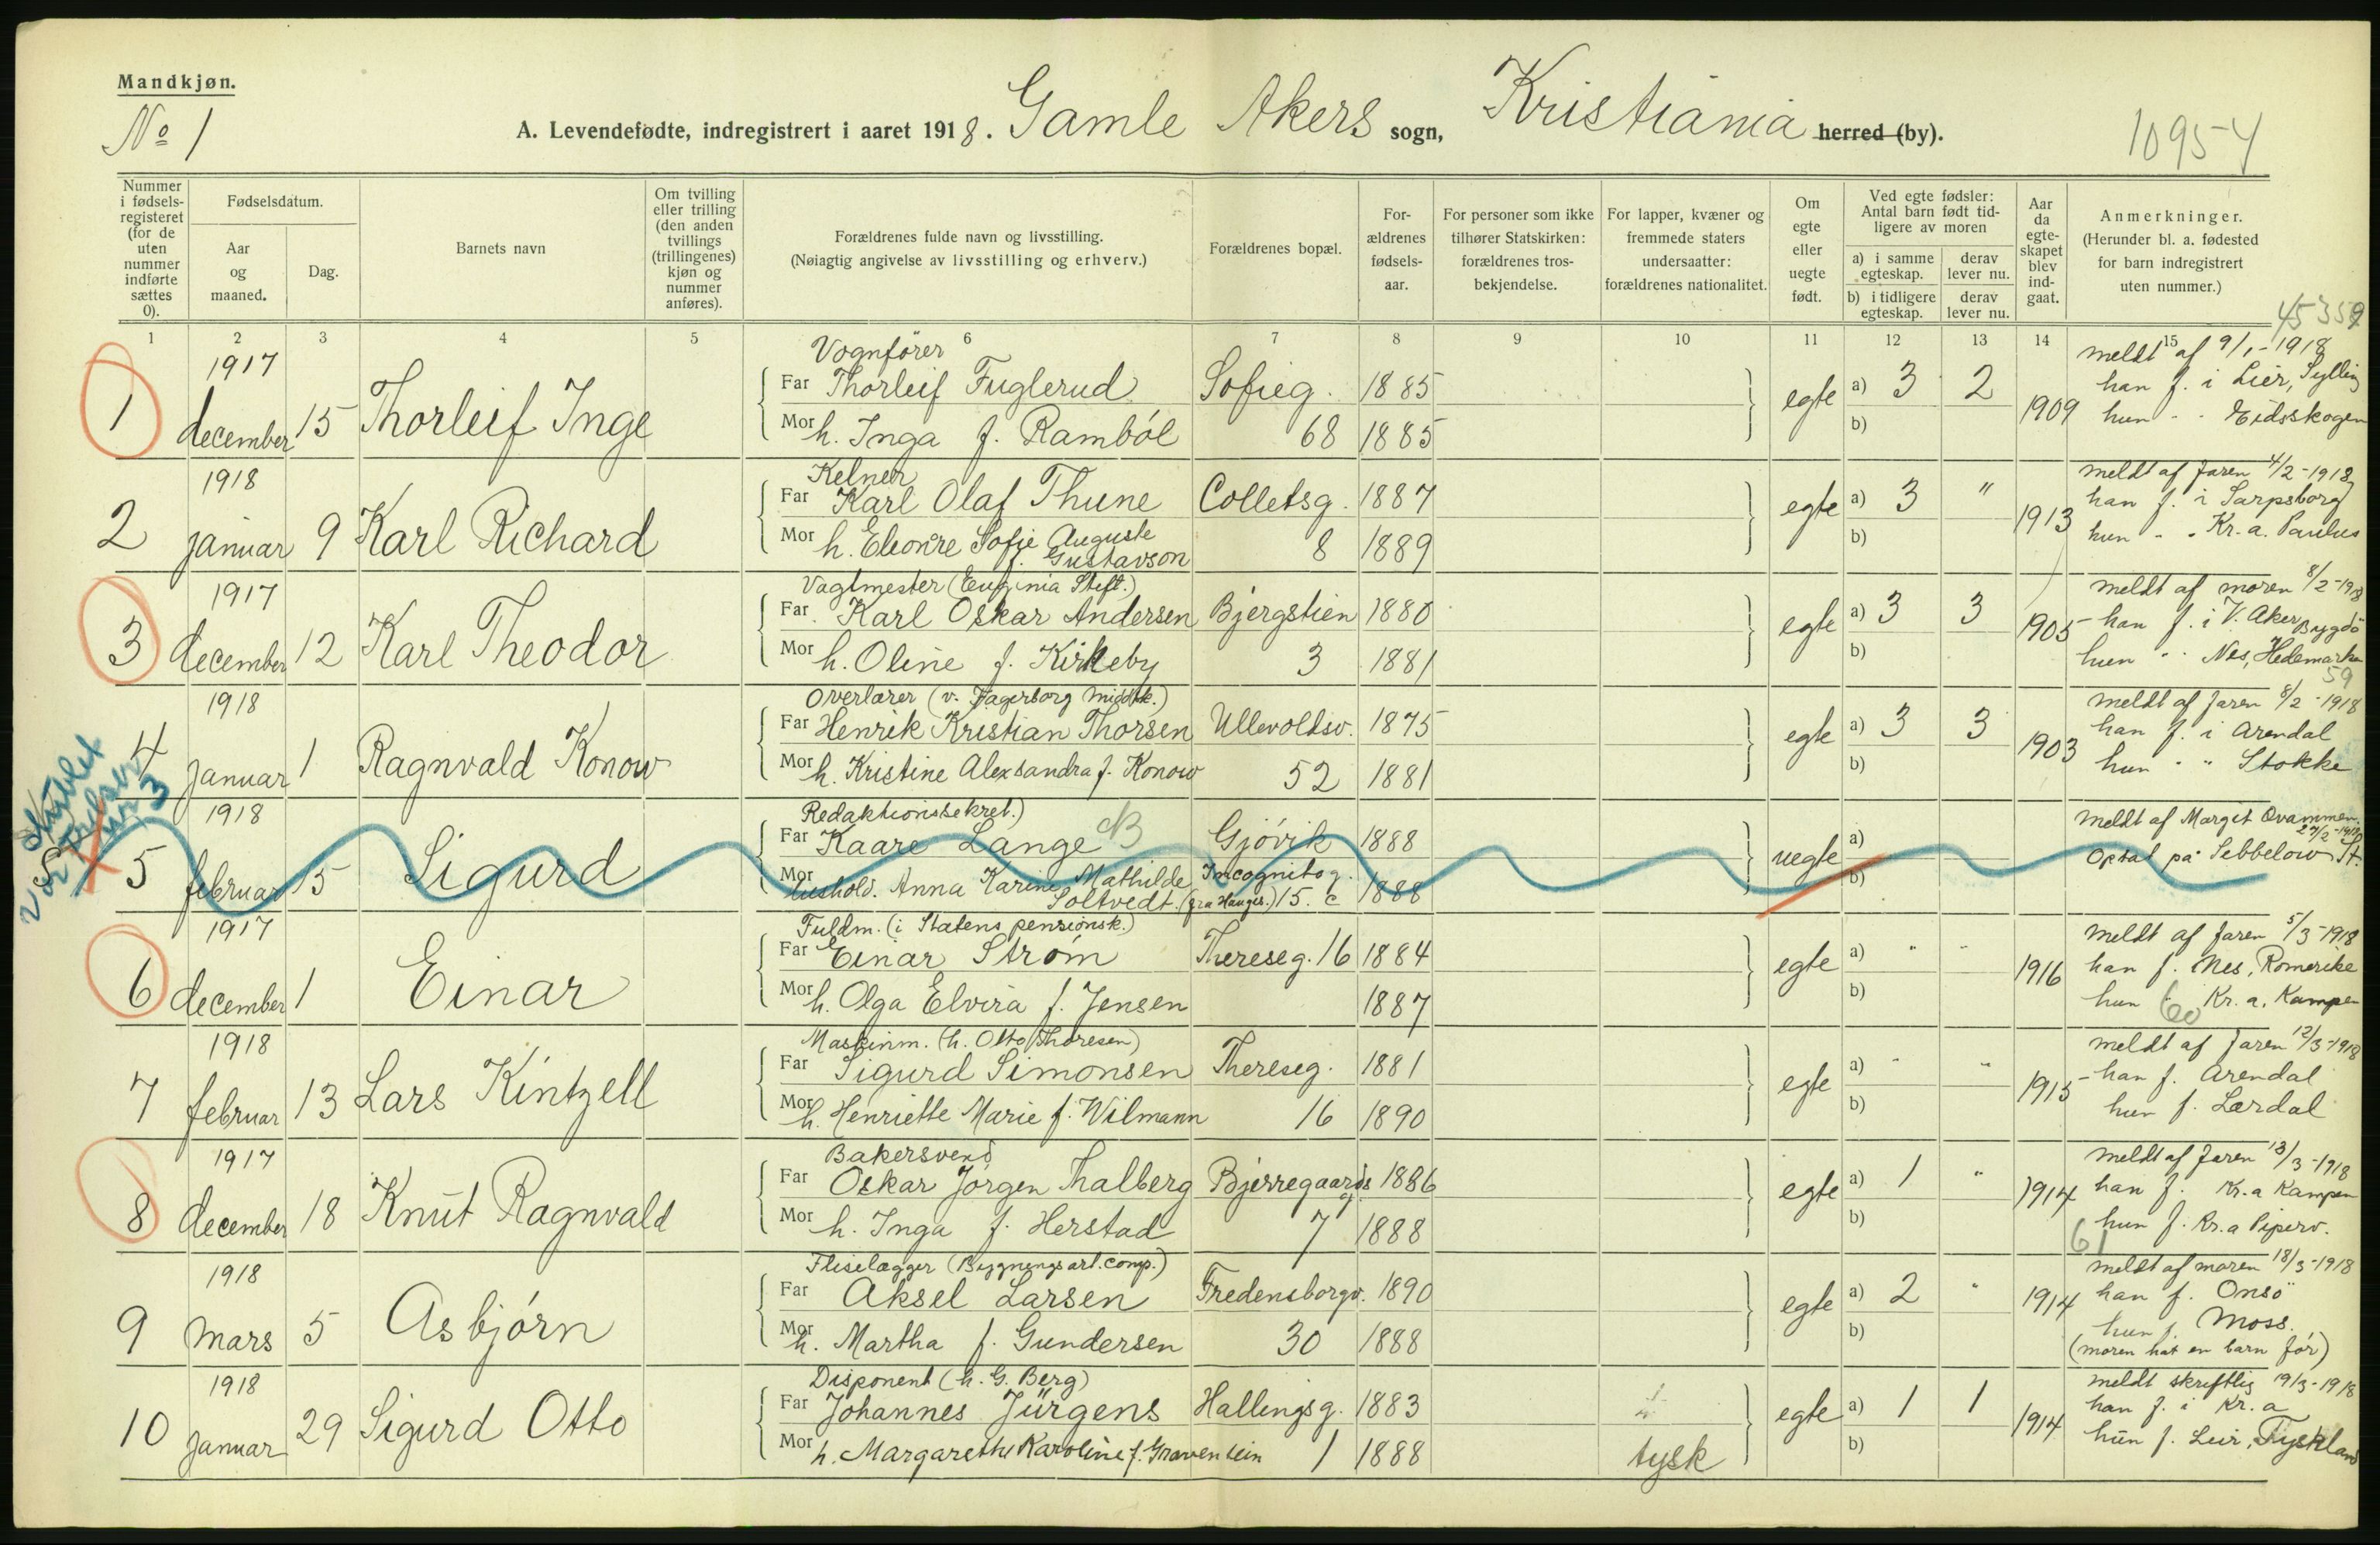 Mandkjøn.
No 1
A. Levendefødte, indregistrert i aaret 1918. Gamle Akers sogn, Kristiania herred (by).
10954
Nummer i fødselsregisteret (for de uten nummer indførte sættes 0).
Fødselsdatum.
Aar og maaned.
Dag.
Barnets navn
Om tvilling eller trilling (den anden tvillings (trillingenes) kjøn og nummer anføres).
Forældrenes fulde navn og livsstilling.
(Nøiagtig angivelse av livsstilling og erhverv.)
Forældrenes bopæl.
Forældrenes fødselsaar.
For personer som ikke tilhører Statskirken: forældrenes trosbekjendelse.
For lapper, kvæner og fremmede staters undersaatter: forældrenes nationalitet.
Om egte eller uegte født.
Ved egte fødsler: Antal barn født tidligere av moren
a) i samme egteskap.
derav lever nu.
b) i tidligere egteskap.
derav lever nu.
Aar da egteskapet blev indgaat.
Anmerkninger.
(Herunder bl. a. fødested for barn indregistrert uten nummer.)
45359
1 2 3 4 5 6 7 8 9 10 11 12 13 14 15
1917 Vognfører meldt af 9/1-1918
1 december 15 Thorleif Inge Far Thorleif Fuglerud Sofieg. 1885 egte a) 3 2 1909 han f. i Lier, Sylling
Mor h. Inga f. Rambøl 68 1885 b) hun - - Eidsskogen
1918 Kelner meldt af faren 4/2-1918
2 januar 9 Karl Richard Far Karl Olaf Thune Colletsg. 1887 egte a) 3 " 1913 han f. i Sarpsborg
Mor h. Eleonore Sofie Auguste f. Gustavson 8 1889 b) hun - - Kr.a. Paulus
1917 Vagtmester (Euginia Stift.) meldt af moren 8/2-1918
3 december 12 Karl Theodor Far Karl Oskar Andersen Bjergstien 1880 egte a) 3 3 1905 han f. i V. Aker Bygdö
Mor h. Oline f. Kirkeby 3 1881 b) hun " Nes, Hedemarken
59
1918 Overlærer (v. Fagerborg middsk.) meldt af faren 8/2-1918
4 januar 1 Ragnvald Konow Far Henrik Kristian Thorsen Ullevoldsv. 1875 egte a) 3 3 1903 han f. i Arendal
Mor h. Kristine Alexsandra f. Konow 52 1881 b) hun " " Stokke
1918 Redaktionssekret.) meldt af Margit Ovammen 27/2-1918
5 februar 15 Sigurd Far Kaare Lange Gjøvik 1888 uegte a) Optat på Sebbelows St.
Mor hushold. Anna Karine Mathilde Soltvedt. (fra Hauger.) Incognitog. 15. c 1888 b)
1917 Fuldm. (i Statens pensionsk.) meldt af faren 5/3-1918
6 december 1 Einar Far Einar Strøm Thereseg. 16 1884 egte a) " " 1916 han f. Nes, Romerike
Mor h. Olga Elvira f. Jensen 1887 b) hun Kr.a, Kampen
60
1918 Maskinm. (h. Otto Thoresen) meldt af faren 12/3-1918
7 februar 13 Lars Kintzell Far Sigurd Simonsen Thereseg. 1881 egte a) " " 1915 han f. Arendal
Mor h. Henriette Marie f. Wilmann 16 1890 b) hun f. Lærdal
1917 Bakersvend meldt af faren 13/3-1918
8 december 18 Knut Ragnvald Far Oskar Jørgen Thalberg Bjerregaardsg. 1886 egte a) 1 " 1914 han f. Kr.a Kampen
Mor h. Inga f. Herstad 7 1888 b) hun f. Kr.a Piperv.
61
1918 Fliselægger (Bygningsart. comp.) meldt af moren 18/3-1918
9 mars 5 Asbjørn Far Aksel Larsen Fredensborgv. 1890 egte a) 2 " 1914 han f. Onsö
Mor h. Martha f. Gundersen 30 1888 b) hun f. Moss.
(moren hat en barn før)
1918 Disponent (h. G. Berg) meldt skriftlig 19/3-1918
10 januar 29 Sigurd Otto Far Johannes Jürgens Hallingsg. 1883 egte a) 1 1 1914 han f. i Kr.a
Mor h. Margarethe Karoline f. Gravenstein 1 1888 tysk b) hun f. Leir, Tyskland